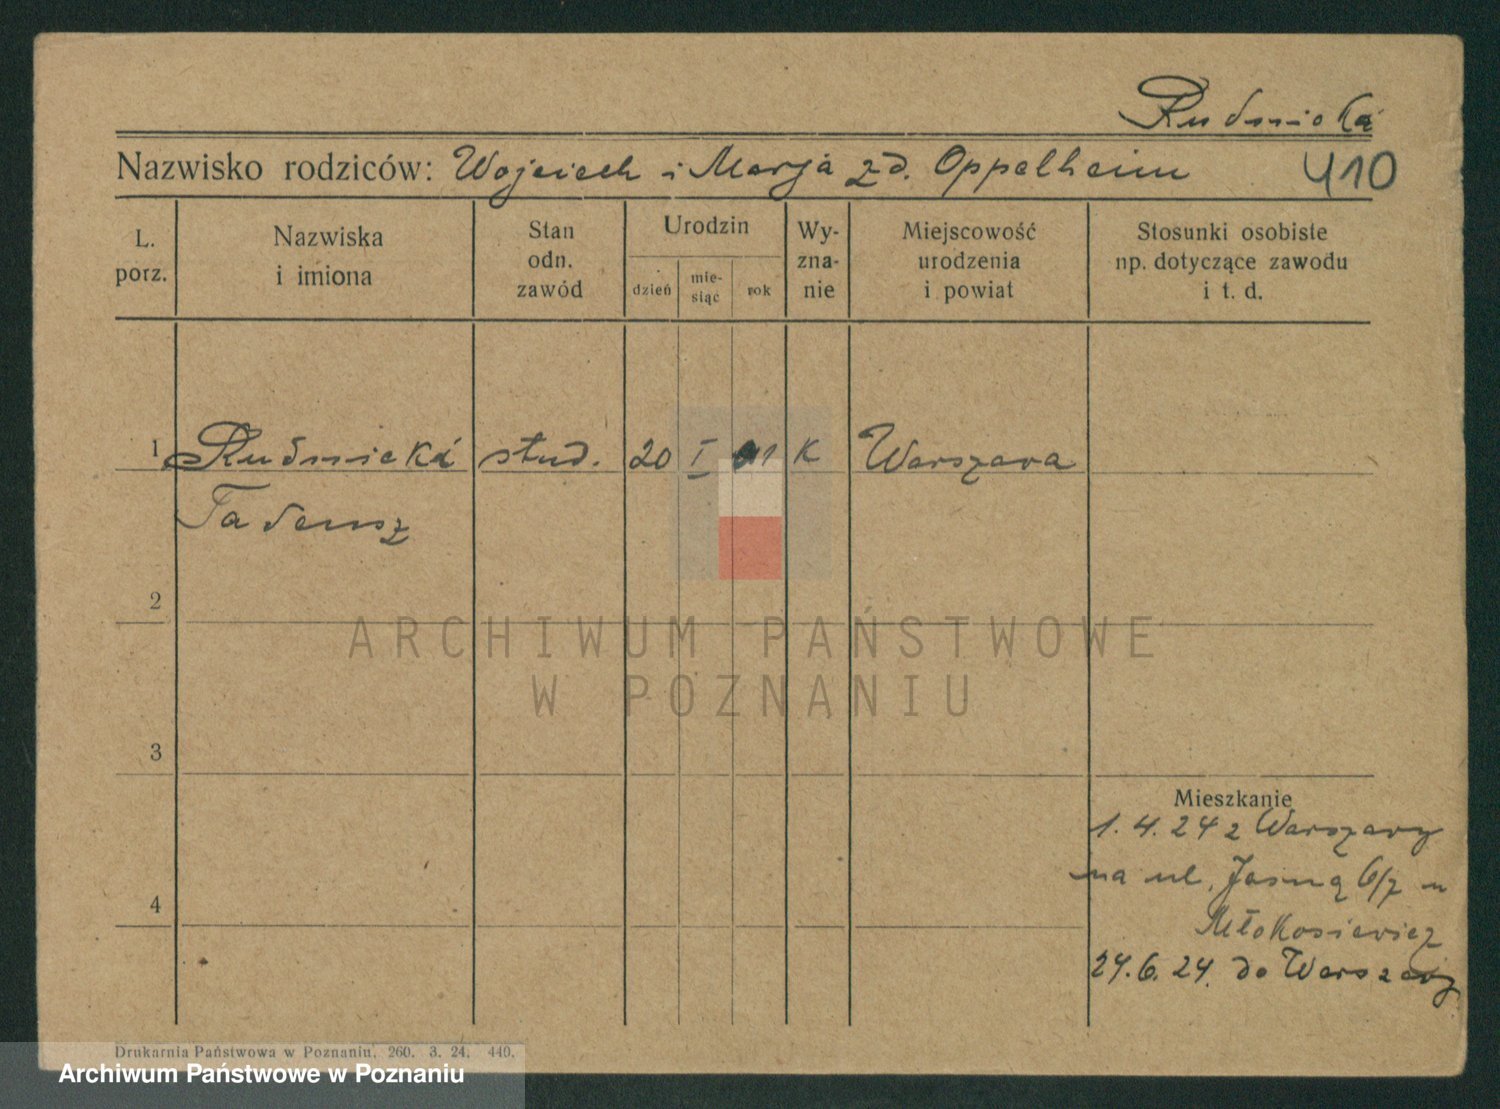 Rudnicki
Nazwisko rodziców: Wojciech i Marja zd. Oppelheim 410
L. porz.
Nazwiska i imiona
Stan odn. zawód
Urodzin
dzień
mie-
siąc
rok
Wy-
zna-
nie
Miejscowość
urodzenia
i powiat
Stosunki osobiste
np. dotyczące zawodu
i t. d.
1 Rudnicki stud. 20 I 01 K Warszawa
Tadeusz
2
ARCHIWUM PAŃSTWOWE
W POZNANIU
3
Mieszkanie
1.4.24 z Warszawy
na ul. Jasną 6/7 u
4
Młokosiewicz
24.6.24. do Warszawy
Drukarnia Państwowa w Poznaniu. 260. 3. 24. 440.
Archiwum Państwowe w Poznaniu